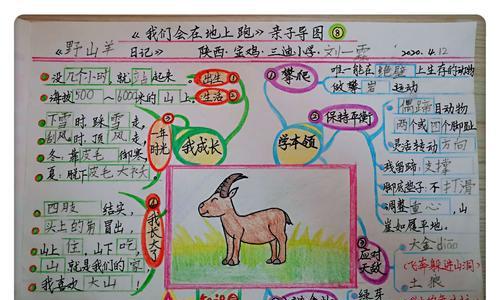 《我们会在地上跑》亲子导图⑧
《野山羊日记》 陕西·宝鸡·三迪小学·刘一霏 2020.4.12
没几个小时就站起来。
海拔500~6000米的山上。
出生①
生活②
下雪时,踩雪走,
刮风时,顶风走,
冬:靠皮毛御寒
夏:脱下皮毛大衣
③一年时光
我成长
四肢结实,
头上的角冒出,
山上住,山下吃,
山就是我们的家,
我喜欢大山!
④我长大了
①攀爬
唯一能在绝壁上生存的动物
做攀岩运动
②保持平衡
偶蹄目动物
两个或四个脚趾
灵活转动方向
残留蹄:支撑
脚底垫子:不打滑
调整重心,山崖如履平地。
学本领
③应对天敌
大金diāo
(飞奔躲进山洞)
土狼